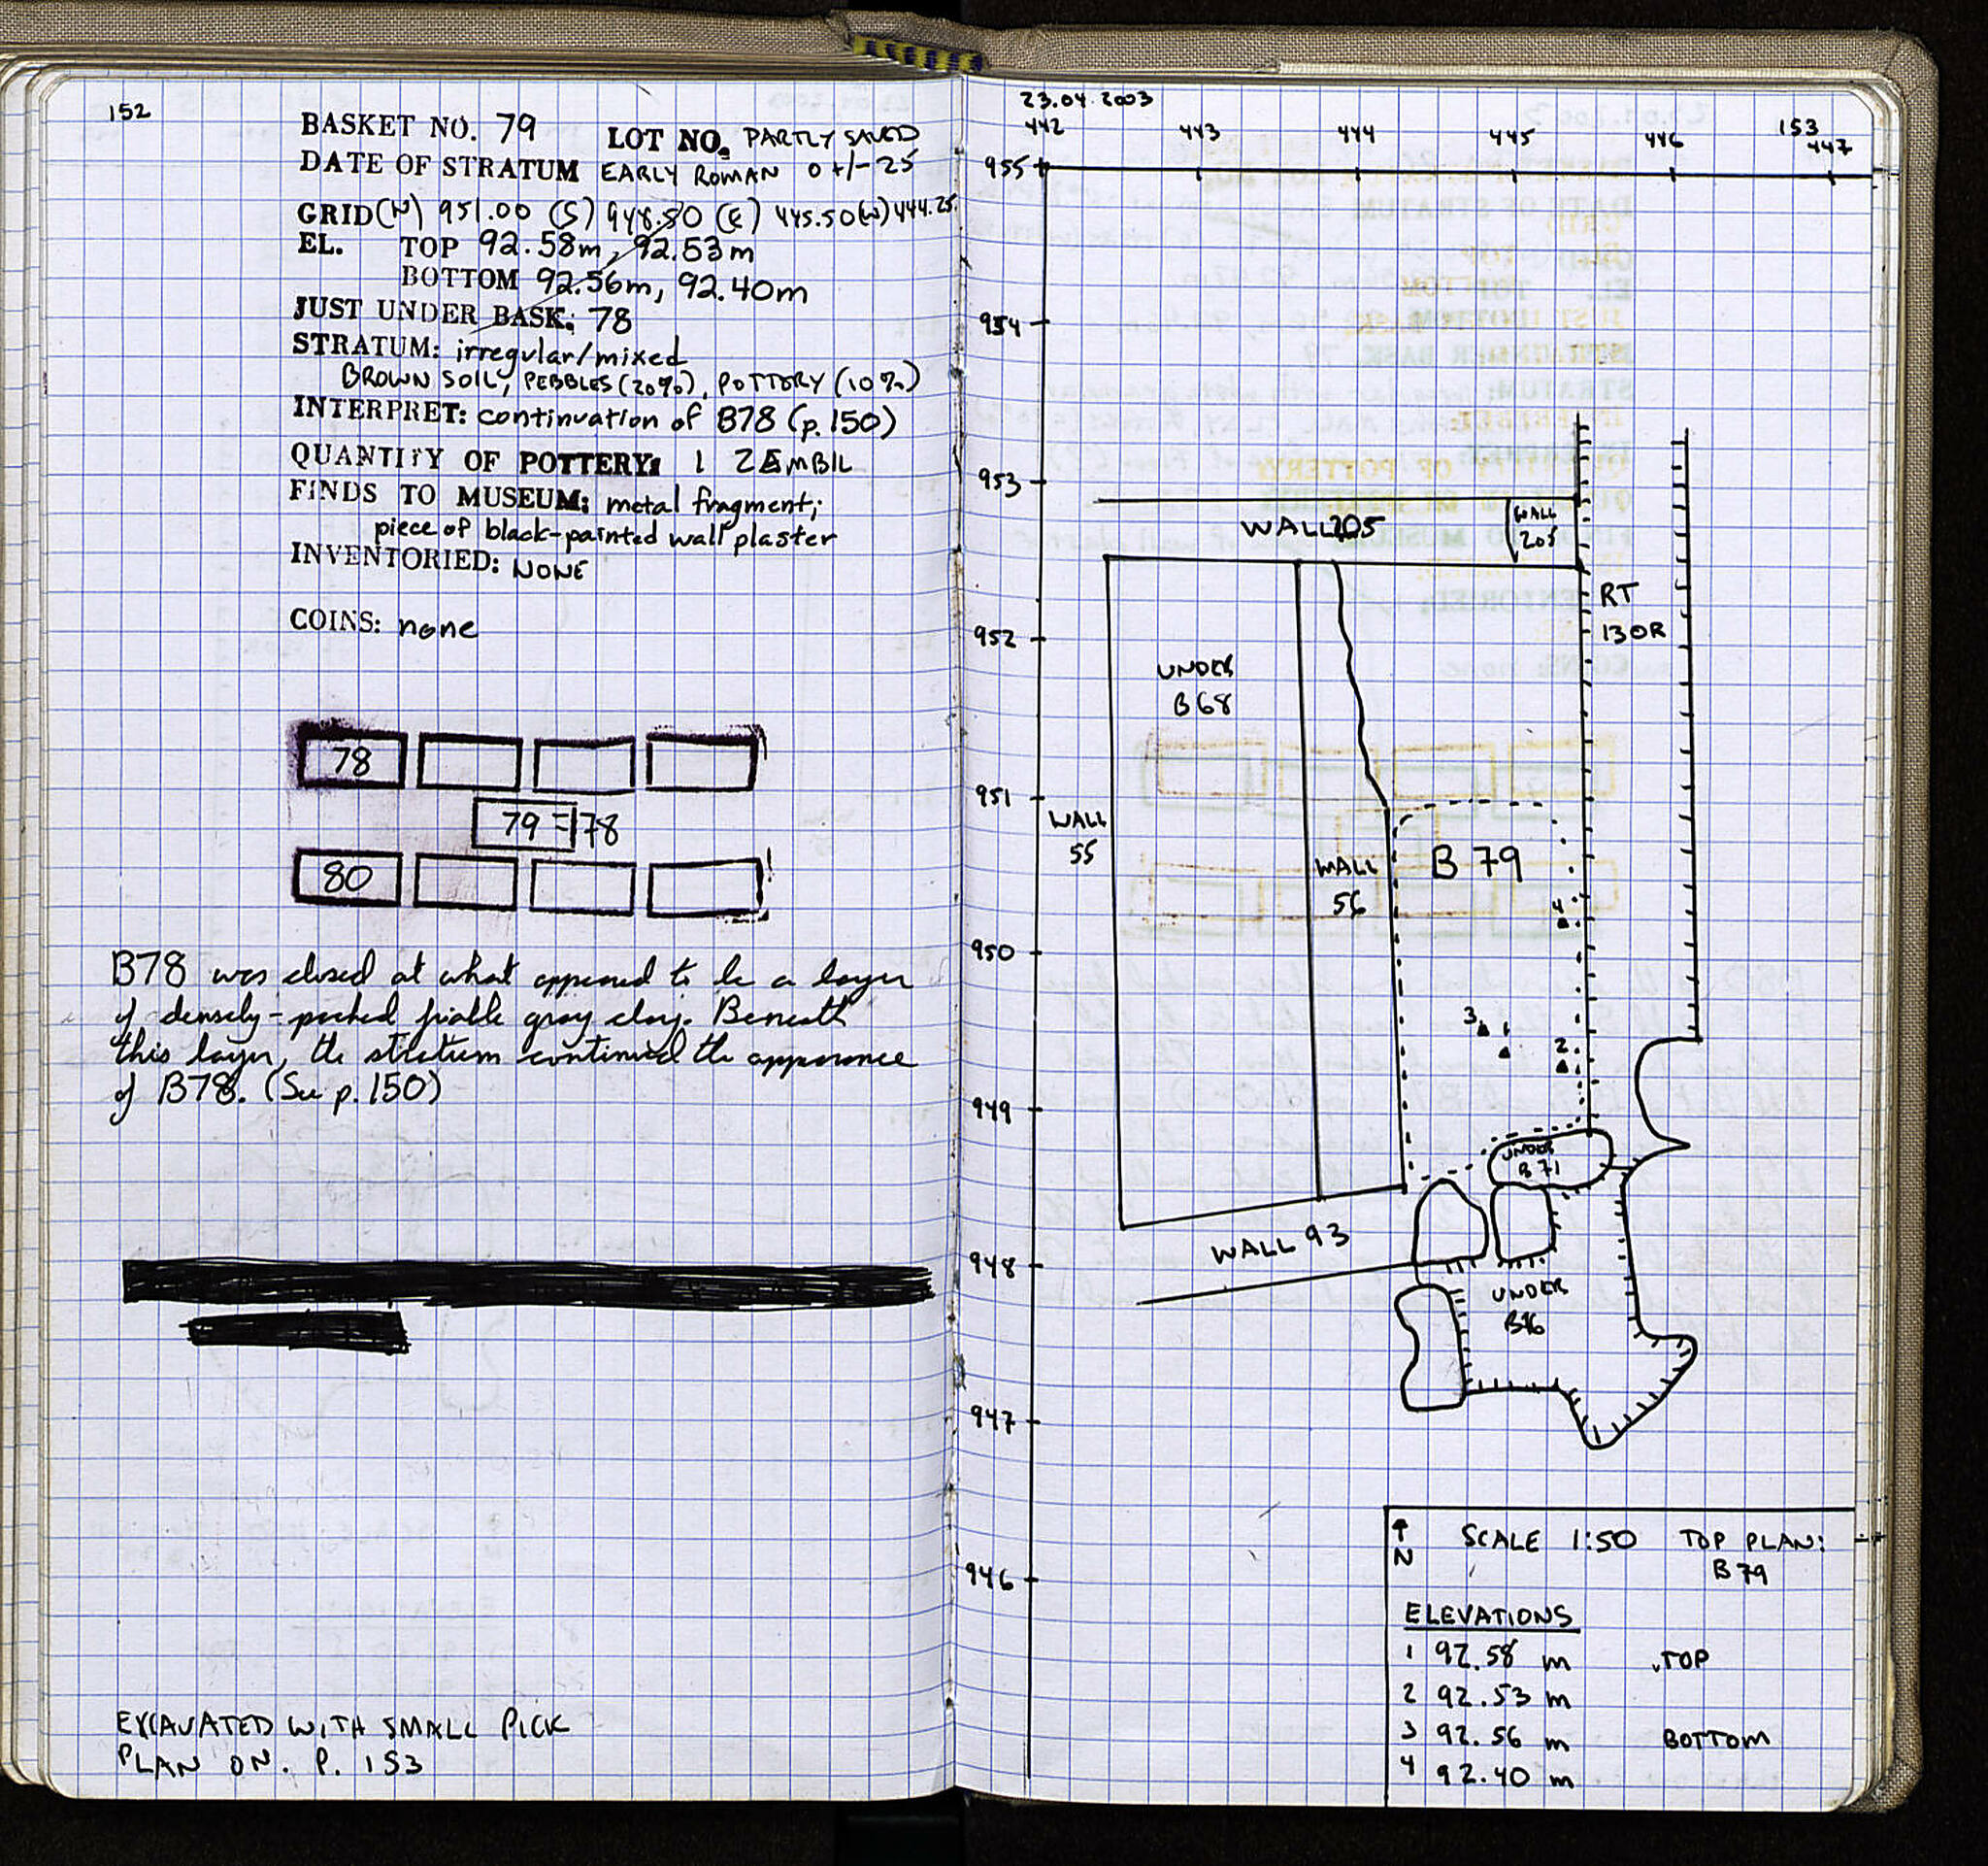 152
BASKET NO. 79 LOT NO. PARTLY SAVED
DATE OF STRATUM EARLY ROMAN 0 +/- 25
GRID (N) 951.00 (S) 948.50 (E) 445.50 (W) 444.25
EL. TOP 92.58m, 92.53m
BOTTOM 92.56m, 92.40m
JUST UNDER BASK: 78
STRATUM: irregular/mixed
BROWN SOIL, PEBBLES (20%), POTTERY (10%)
INTERPRET: continuation of B78 (p.150)
QUANTITY OF POTTERY: 1 ZEMBIL
FINDS TO MUSEUM: metal fragment;
piece of black-painted wall plaster
INVENTORIED: NONE
COINS: none
78
79 = 78
80
B78 was closed at what appeared to be a layer
of densely-packed friable gray clay. Beneath
this layer, the stratum continued the appearance
of B78. (See p. 150)
EXCAVATED WITH SMALL PICK
PLAN ON. P. 153
23.04.2003
153
442 443 444 445 446 447
955
954
953
WALL 205
WALL
205
RT
130R
952
UNDER
B68
951
WALL
55
B 79
WALL
56
4
950
3
1
2
949
UNDER
B 71
WALL 93
948
UNDER
947
946
↑
N
SCALE 1:50 TOP PLAN:
B 79
ELEVATIONS
1 92.58 m TOP
2 92.53 m
3 92.56 m BOTTOM
4 92.40 m